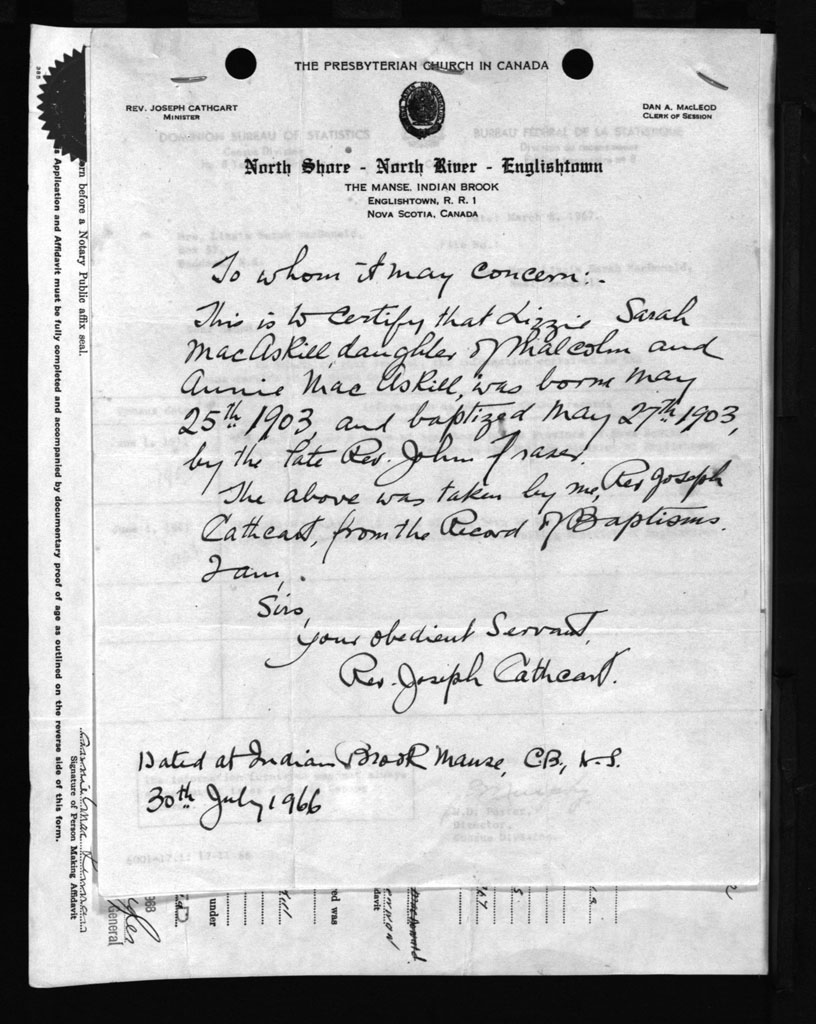 THE PRESBYTERIAN CHURCH IN CANADA
REV. JOSEPH CATHCART
MINISTER
DAN A. MACLEOD
CLERK OF SESSION
DOMINION BUREAU OF STATISTICS
BUREAU FÉDÉRAL DE LA STATISTIQUE
North Shore - North River - Englishtown
THE MANSE, INDIAN BROOK
ENGLISHTOWN, R. R. 1
NOVA SCOTIA, CANADA
To whom it may concern:-
This is to certify that Lizzie Sarah
MacAskill, daughter of Malcolm and
Annie MacAskill, was borne May
25th 1903, and baptized May 27th 1903,
by the late Rev. John Fraser.
The above was taken by me, Rev Joseph
Cathcart, from the Record of Baptisms.
I am,
Sirs,
your obedient Servant,
Rev. Joseph Cathcart.
Dated at Indian Brook Manse, C.B., N.S.
30th July 1966
orn before a Notary Public affix seal.
is Application and Affidavit must be fully completed and accompanied by documentary proof of age as outlined on the reverse side of this form.
Signature of Person Making Affidavit
968
General
under
red was
davit
MacDonald